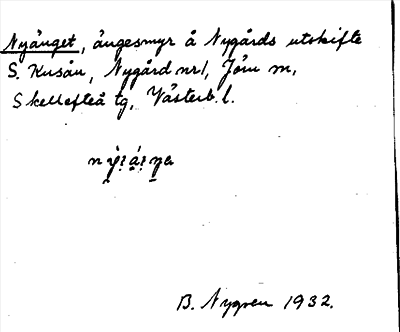 Nyänget, ängesmyr å Nygårds utskifte
S. Kusån, Nygård nr 1, Jörn sn,
Skellefteå tg, Västerb. l.
B. Nygren 1932.